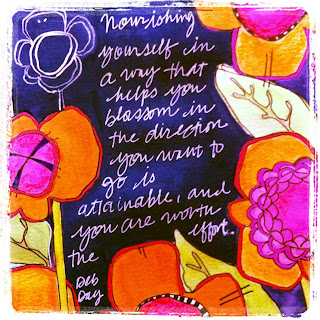 Nourishing
yourself in
a way that
helps you
blossom in
the direction
you want to
go is
attainable, and
you are worth
the effort.
Deb
Day